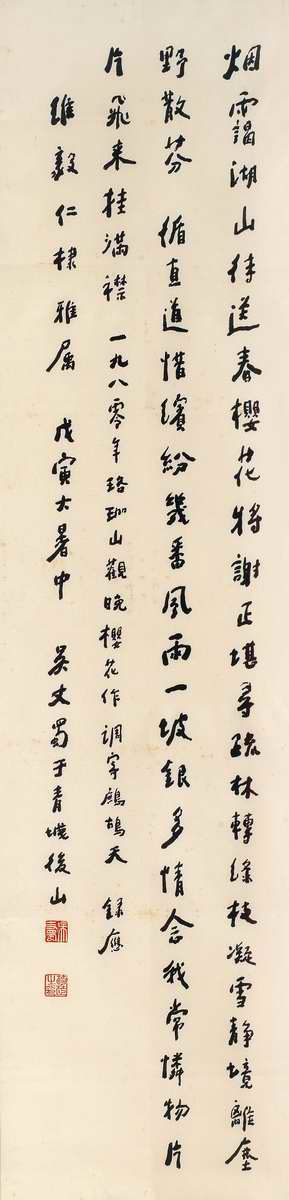 烟靄湖山待送春櫻花將謝正堪尋疏林轉綠枝凝雪静境離塵
野散芬 循直道惜繽紛幾番風雨一坡銀多情念我常憐物片
片飛来挂滿襟 一九八零年珞珈山觀晚櫻花作 調寄鷓鴣天 録應
維毅仁棣雅属 戊寅大暑中 吴丈蜀于青城後山